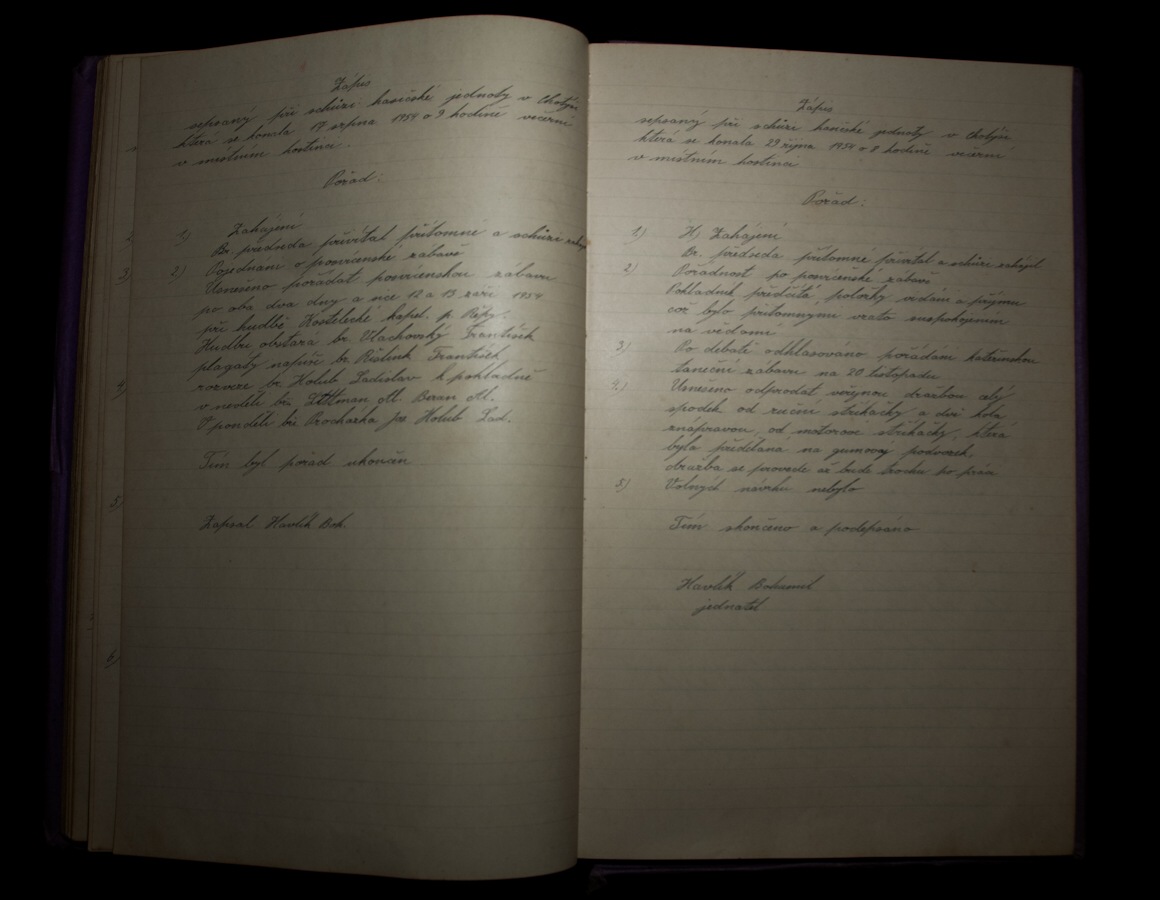 Zápis
sepsaný při schůzi hasičské jednoty v Chotýši
která se konala 17 srpna 1954 o 9 hodině večerní
v místním hostinci.
Pořad:
1) Zahájení
Br. předseda přivítal přítomné a schůzi zahájil
2) Pojednání o posvícenské zábavě
Usneseno pořádat posvícenskou zábavu
po oba dva dny a sice 12 a 13 září 1954
při hudbě Kostelecké kapel. p. Řépy.
Hudbu obstará br. Vlachovský František
plagáty napíše br. František
rozveze br. Holub Ladislav k pokladně
v neděli bří. Zettman Ml. Beran Ml.
V pondělí bří Procházka Jos Holub Lad.
Tím byl pořad ukončen
Zapsal Havlík Boh.
Zápis
sepsaný při schůzi hasičské jednoty v Chotýši
která se konala 29 října 1954 o 8 hodině večerní
v místním hostinci
Pořad:
1) H) Zahájení
Br. předseda přítomné přivítal a schůzi zahájil
2) Pořadnost po posvícenské zábavě
Pokladník předčítá, položky vydání a příjmu
což bylo přítomnými vzato s uspokojením
na vědomí
3) Po debatě odhlasováno pořádání kateřinskou
taneční zábavu na 20 listopadu
4.) Usneseno odprodat veřejnou dražbou celý
spodek od ruční stříkačky a dvě kola
znápravou, od motorové stříkačky, která
byla předělaná na gumový podvozek,
dražba se provede až bude trochu po práci
5) Volných návrhů nebylo
Tím skončeno a podepsáno
Havlík Bohumil
jednatel